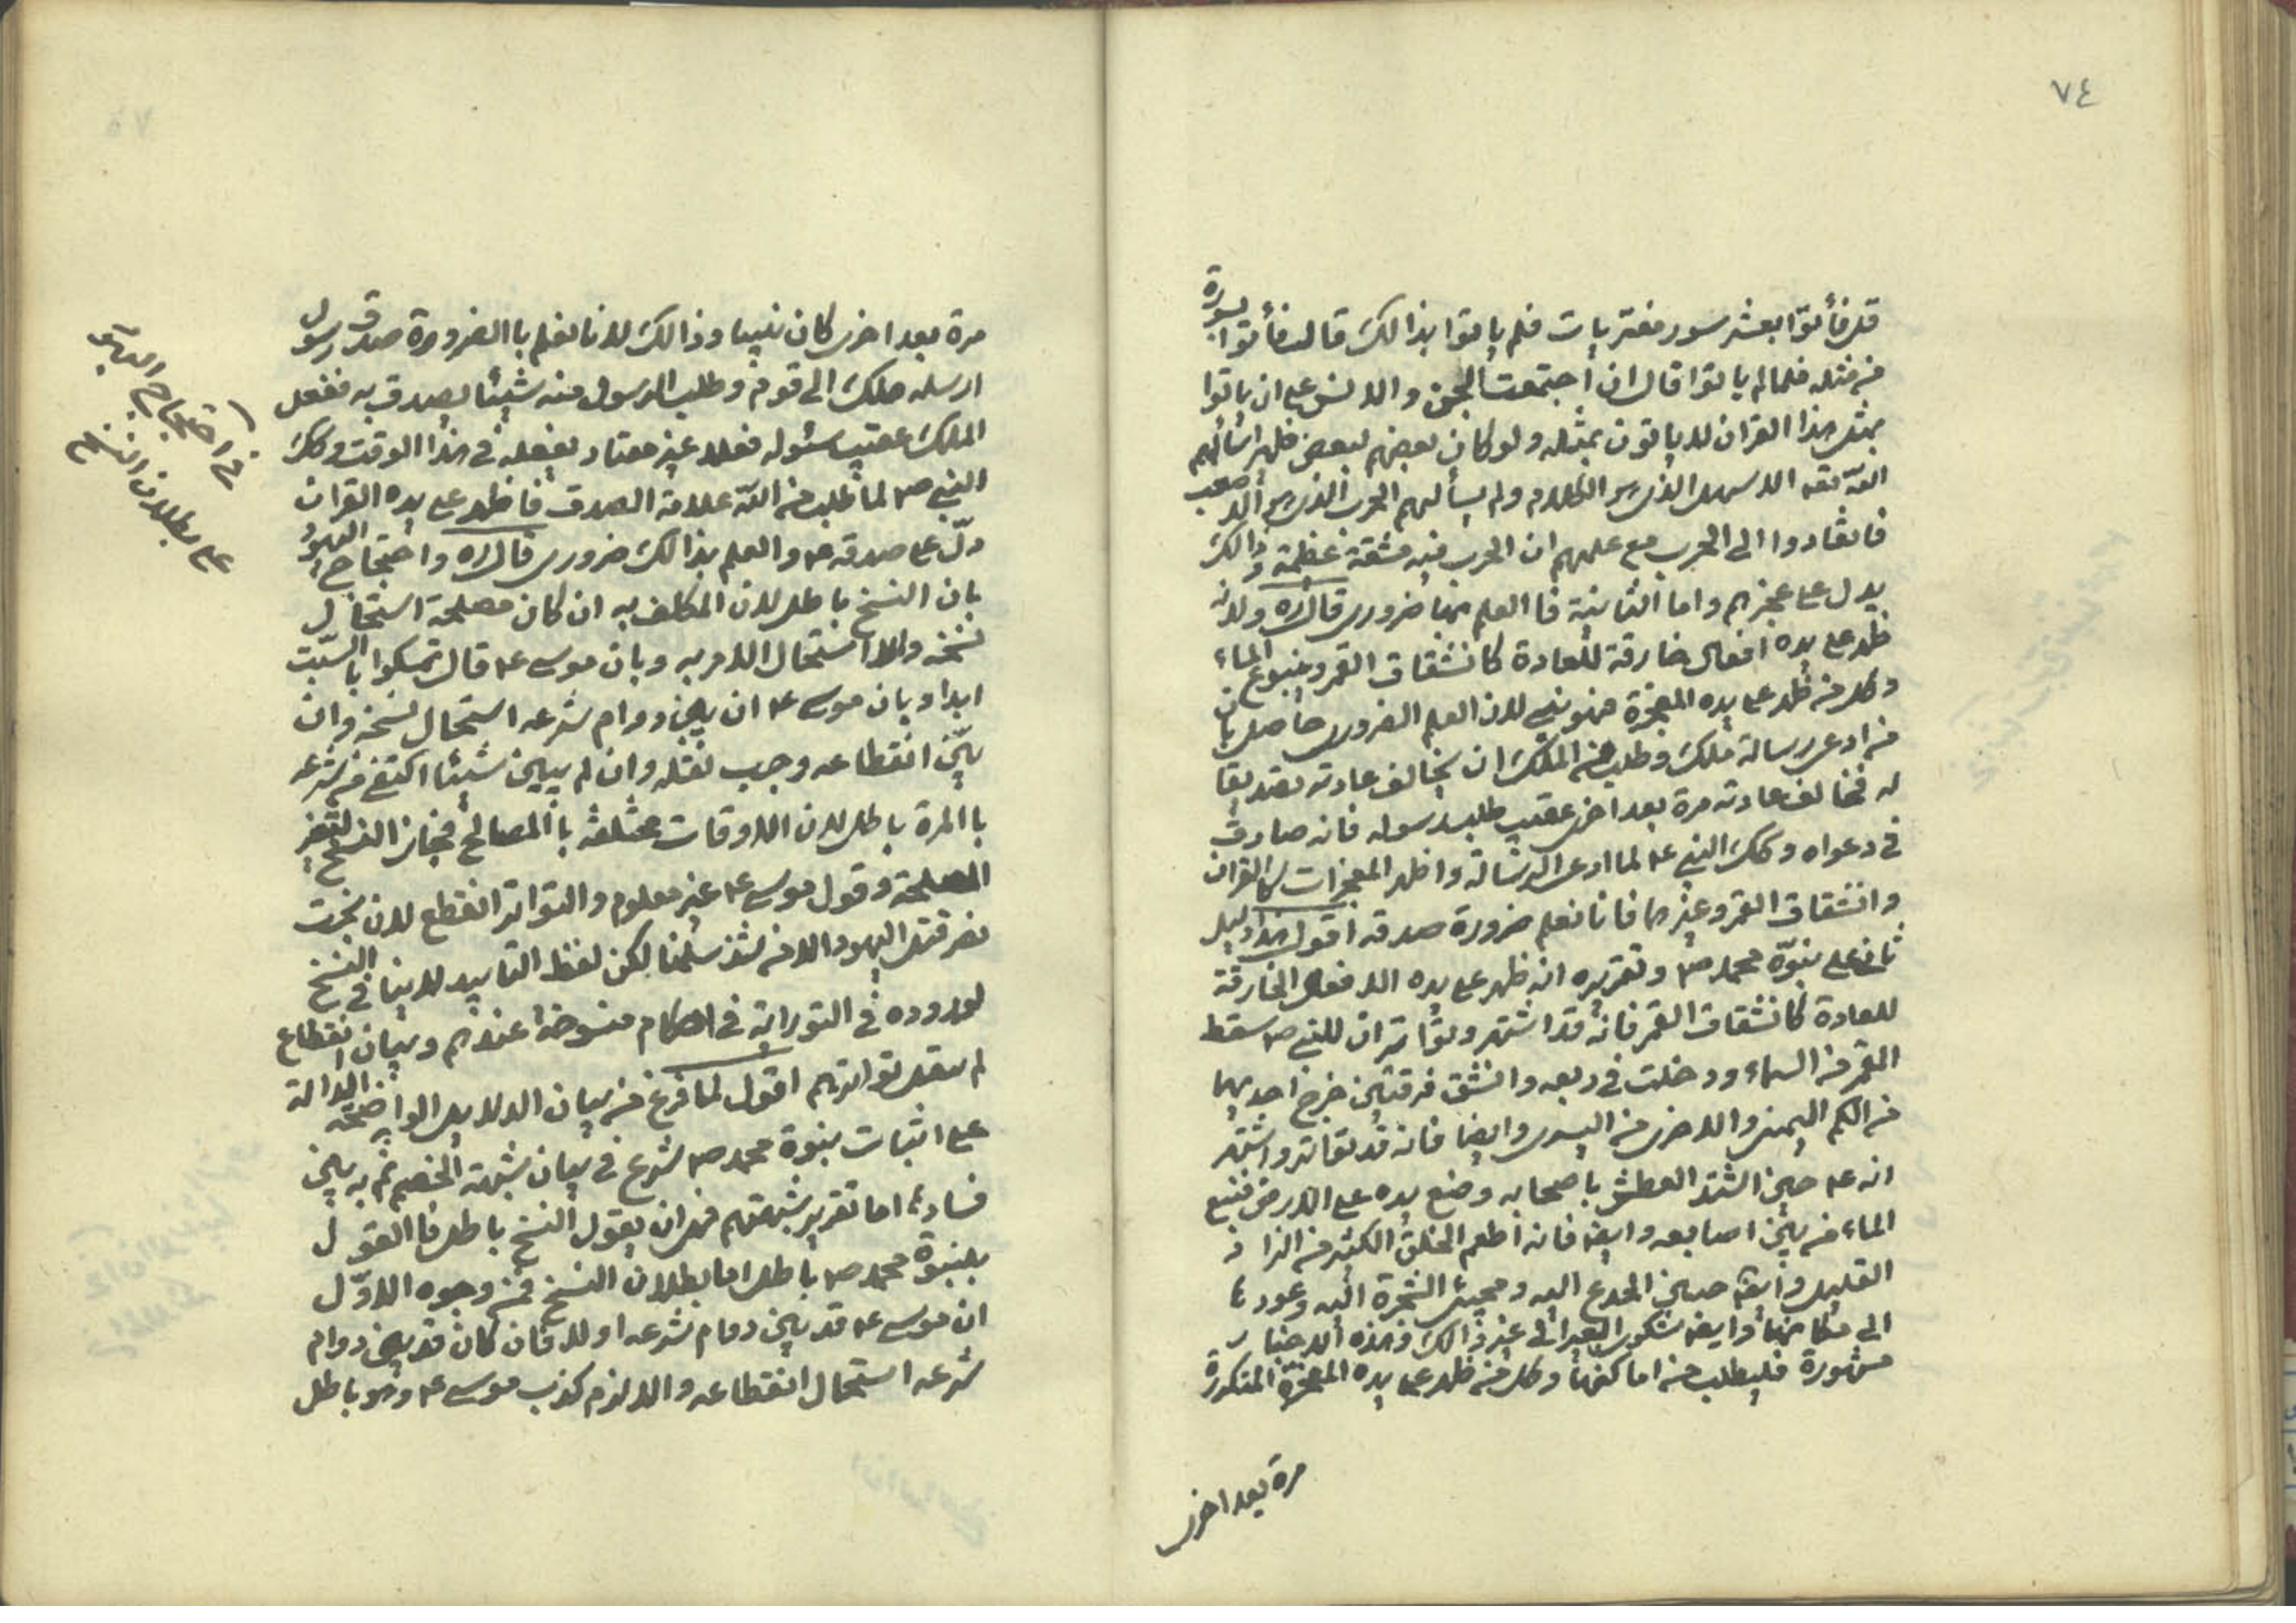 ٧٤
قل فأتوا بعشر سور مفتريات فلم ياتوا بذالك قال فأتوا بسورة
من مثله فلما لم ياتوا قال ان اجتمعت الجن والانس على ان ياتوا
بمثل هذا القران لا ياتون بمثله ولو كان بعضهم لبعض ظهيرا سألهم
الله تعه الاسهل الذى هو الكلام ولم يسألهم الحرب الذى هو الاصعب
فانقادوا الى الحرب مع علمهم ان الحرب فيه مشقة عظيمة وذالك
يدل على عجزهم واما الثانية فاالعلم بها ضرورى قال ره ولانه
ظهر على يده افعال خارقة للعادة كانشقاق القمر وينبوع الماء
وكل من ظهر على يده المعجزة فهو نبى لان العلم الضرورى حاصل بان
من ادعى رسالة ملك وطلب من الملك ان يخالف عادته تصديقا
له فخالف عادته مرة بعد اخرى عقيب طلب رسوله فانه صادق
فى دعواه وكك النبى ع لما ادعى الرسالة واظهر المعجزات كالقران
وانشقاق القمر وغيرها فانا نعلم ضرورة صدقه اقول هذا دليل
ثانى على نبوّة محمد ص وتقريره انه ظهر على يده الافعال الخارقة
للعادة كانشقاق القمر فانه قد اشتهر وتواتر ان للنبى ص سقط
القمر من السماء ودخلت فى ربعه وانشق فرقتين خرج احديهما
من الكم اليمنى والاخرى من اليسرى وايضا فانه قد تواتر واشتهر
انه ع حين اشتد العطش باصحابه وضع يده على الارض فنبع
الماء من بين اصابعه وايضه فانه اطعم الخلق الكثير من الزاد
القليل وايضه حنين الجدع اليه ومجيئ الشجرة اليه وعودها
الى مكانها وايضه شكوى البعير الى غير ذالك وهذه الاخبار
مشهورة فليطلب من اماكنها وكل من ظهر على يده المعجزة المتكررة
مرة بعد اخرى
مرة بعد اخرى كان نبيا وذالك لانا نعلم باالضرورة صدق رسول
ارسله ملك الى قوم وطلب الرسول منه شيئا يصدق به ففعل
الملك عقيب سئوله فعلا غير معتاد بفعله فى هذا الوقت وكك
النبى ص لما طلب من الله علامة الصدق فاظهر على يده القران
دلّ على صدقه ع والعلم بذالك ضرورى قال ره واحتجاج اليهود
بان النسخ باطل لان المكلف به ان كان مصلحة استحال
نسخه والا استحال الامر به وبان موسى ع قال تمسكوا باالسّبت
ابدا وبان موسى ع ان بين دوام شرعه استحال نسخه وان
بيّن انقطاعه وجب نقله وان لم يبين شيئا اكتفى من شرعه
باالمرة باطل لان الاوقات مختلفة باالمصالح فجاز النسخ لتغير
المصلحة وقول موسى ع غير معلوم والتواتر انقطع لان بخت
نصر قتل اليهود الا من شذ سلّمنا لكن لفظ التابيد لا ينافى النسخ
لوروده فى التوراية فى احكام منسوخة عندهم وبيان انقطاع
لم ينقل تواترهم اقول لما فرغ من بيان الدلايل الواضحة الدالة
على اثبات نبوة محمد ص شرع فى بيان شبهة الخصم ثم به بين
فسادها اما تقرير شبهتهم فهو ان يقول النسخ باطل فاالقول
بنبوة محمد ص باطل اما بطلان النسخ فمن وجوه الاوّل
ان موسى ع قد بين دوام شرعه او لا فان كان قد بين دوام
شرعه استحال انقطاعه والا لزم كذب موسى ع وهو باطل
فى احتجاج اليهود
على بطلان النسخ